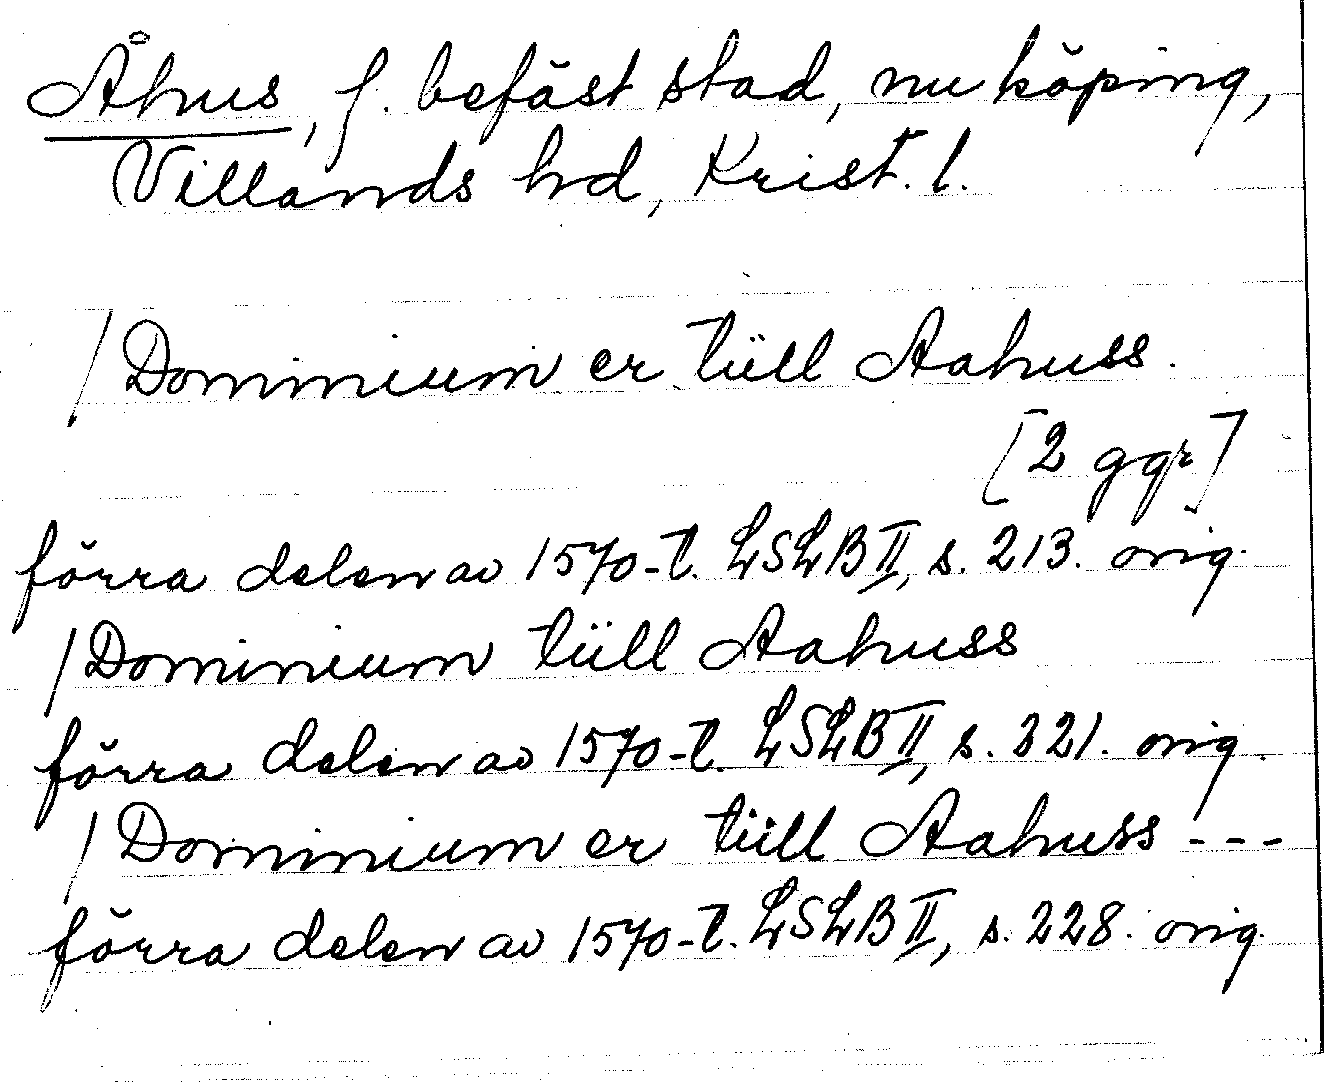 Åhus, f. befäst stad, nu köping,
Villands hd, Krist. l.
/Dominium er tüll Aahuss.
[2 ggr]
förra delen av 1570-t. LSLB II, s. 213. orig.
/Dominium tüll Aahuss
förra delen av 1570-t. LSLB II, s. 221. orig.
/Dominium er tüll Aahuss ---
förra delen av 1570-t. LSLB II, s. 228. orig.